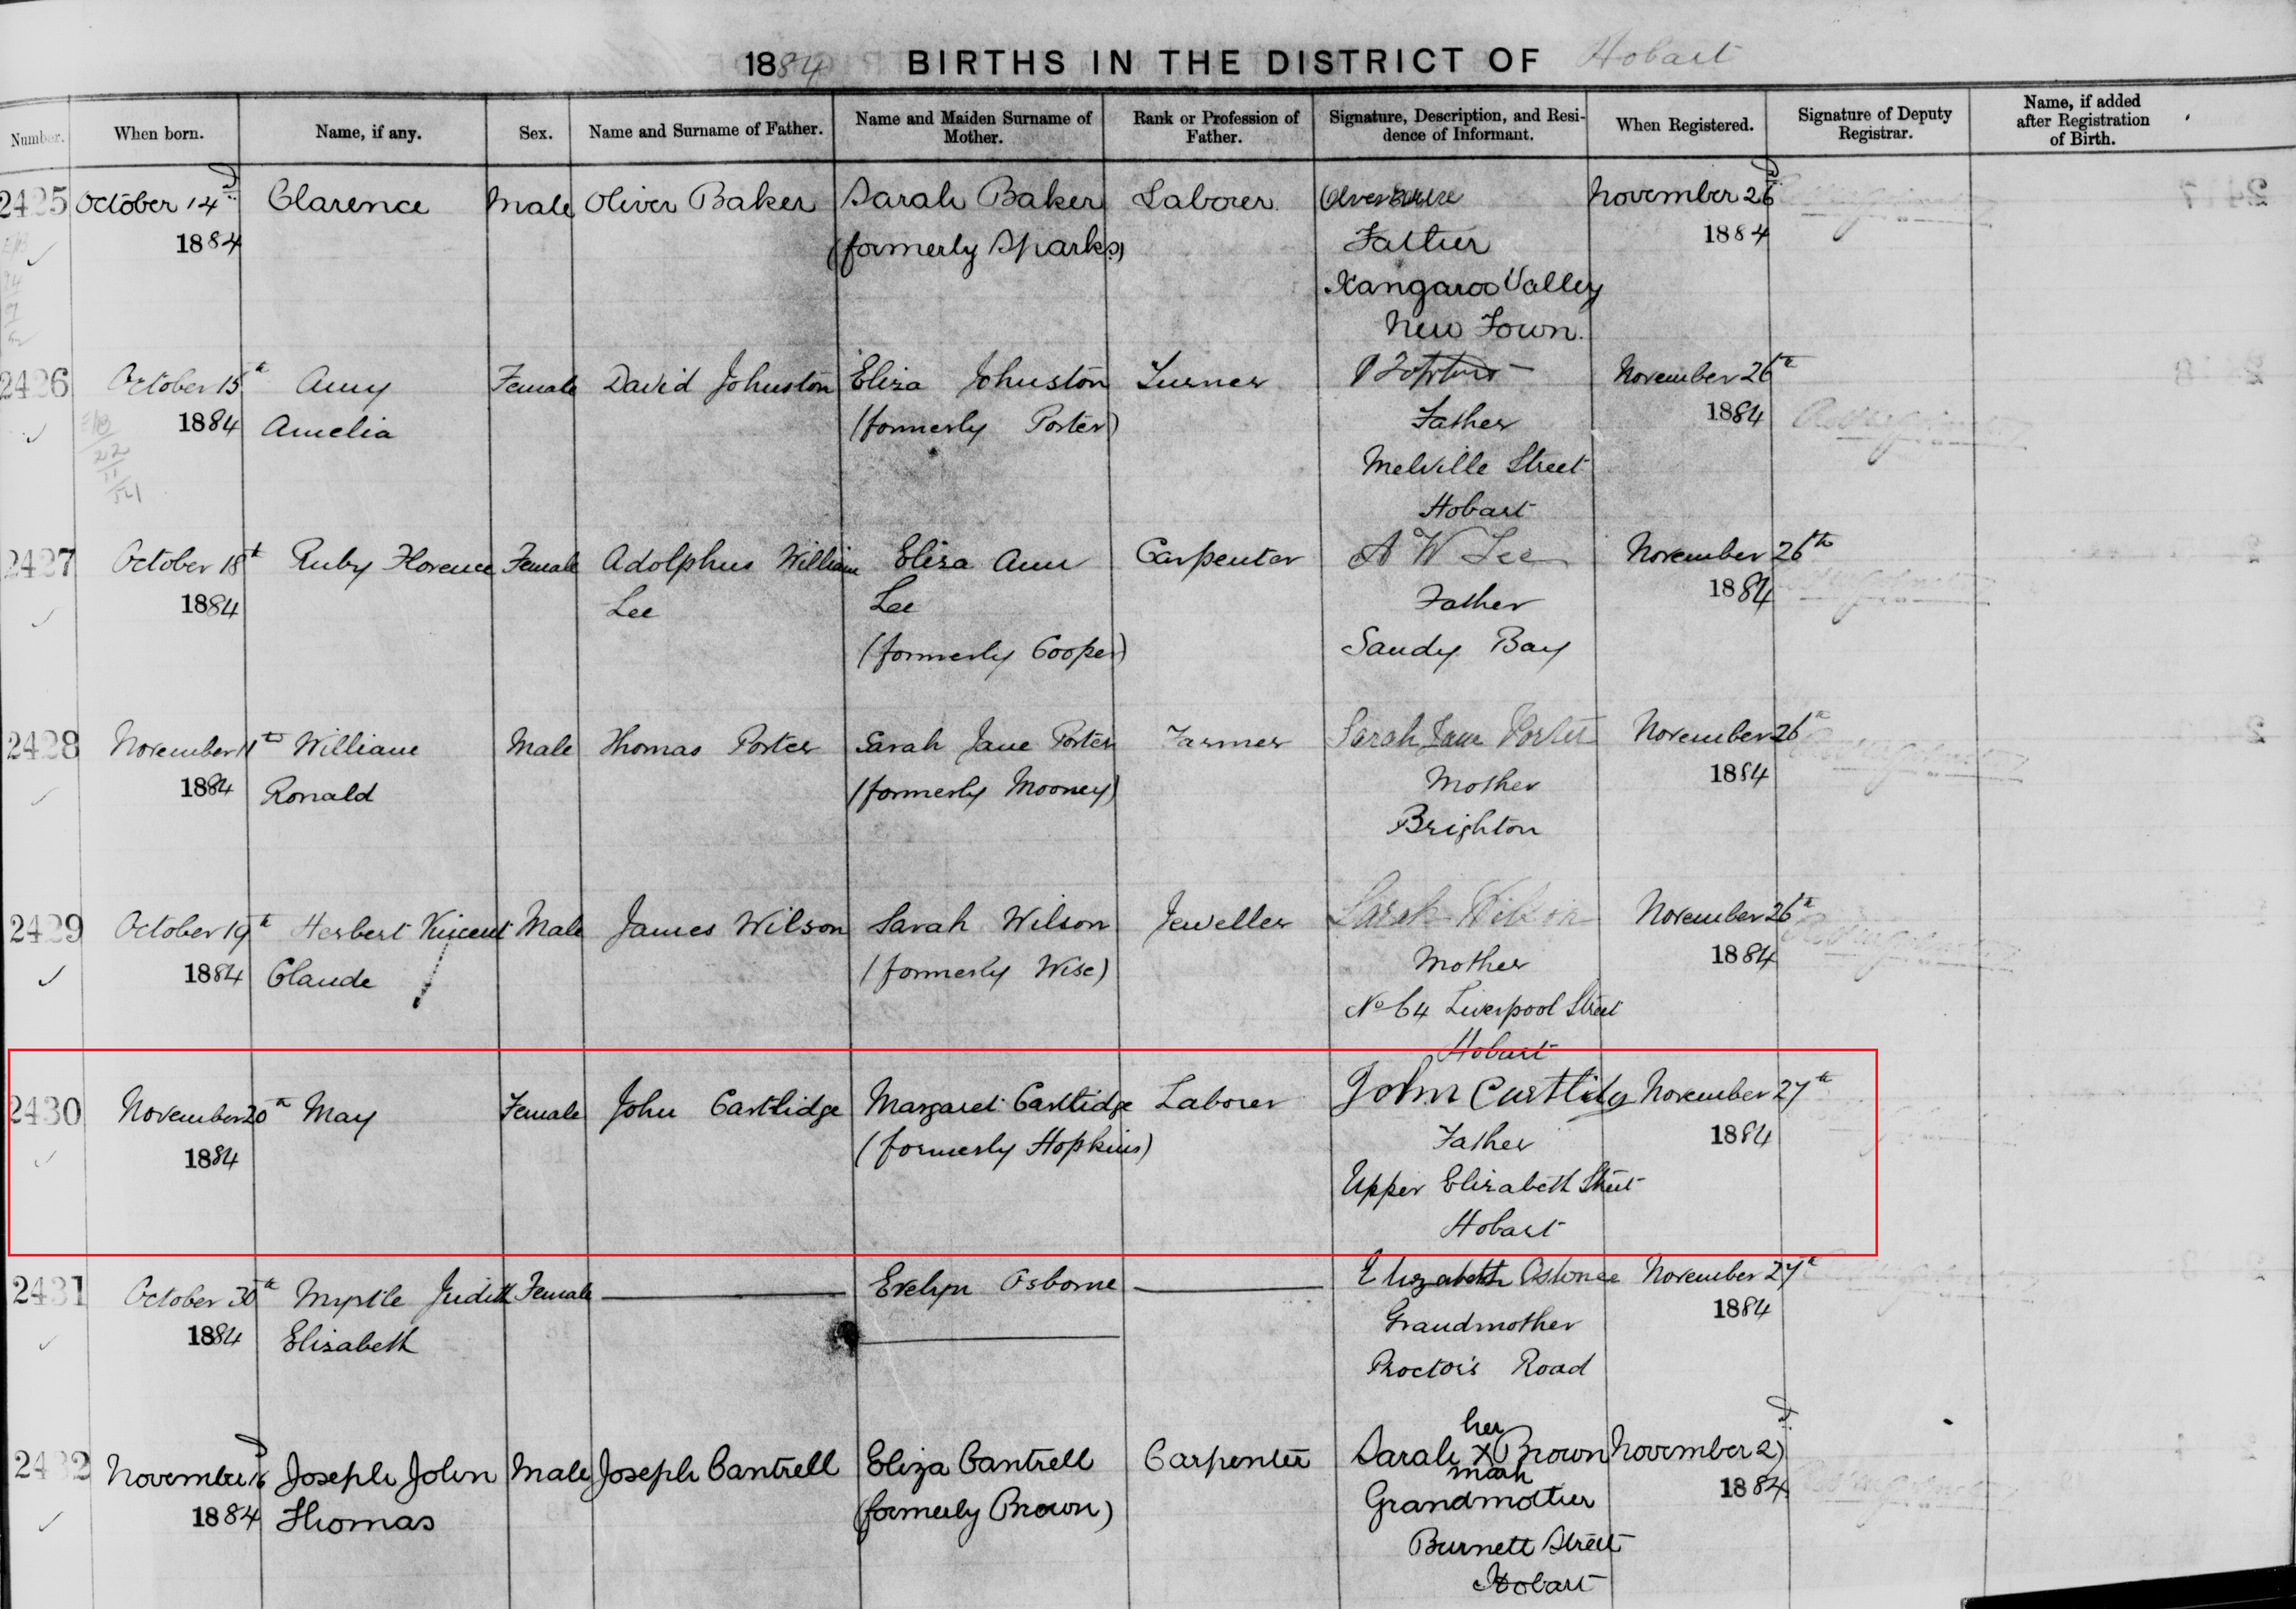 1884 BIRTHS IN THE DISTRICT OF Hobart
Number. When born. Name, if any. Sex. Name and Surname of Father. Name and Maiden Surname of Mother. Rank or Profession of Father. Signature, Description, and Residence of Informant. When Registered. Signature of Deputy Registrar. Name, if added after Registration of Birth.
2425 October 14d Clarence Male Oliver Baker Sarah Baker Laborer November 26d
1884 (formerly Sparks) Father 1884
Kangaroo Valley
New Town.
2426 October 15th Amy Female David Johnston Eliza Johnston Turner November 26th
1884 Amelia (formerly Porter) Father 1884
Melville Street
Hobart
2427 October 18th Ruby Florence Female Adolphus William Eliza Ann Carpenter A W Lee November 26th
1884 Lee Lee Father 1884
(formerly Cooper) Sandy Bay
2428 November 11th William Male Thomas Porter Sarah Jane Porter Farmer Sarah Jane Porter November 26th
1884 Ronald (formerly Mooney) Mother 1884
Brighton
2429 October 19th Herbert Vincent Male James Wilson Sarah Wilson Jeweller Sarah Wilson November 26th
1884 Claude (formerly Wise) Mother 1884
No 64 Liverpool Street
Hobart
2430 November 20th May Female John Cartlidge Margaret Cartlidge Laborer John Cartlidg November 27th
1884 (formerly Hopkins) Father 1884
Upper Elizabeth Street
Hobart
2431 October 30th Myrtle Judith Female Evelyn Osborne Elizabeth Osborne November 27th
1884 Elizabeth Grandmother 1884
Proctor's Road
her
2432 November 16d Joseph John Male Joseph Cantrell Eliza Cantrell Carpenter Sarah X Brown November 27d
mark
1884 Thomas (formerly Brown) Grandmother 1884
Burnett Street
Hobart